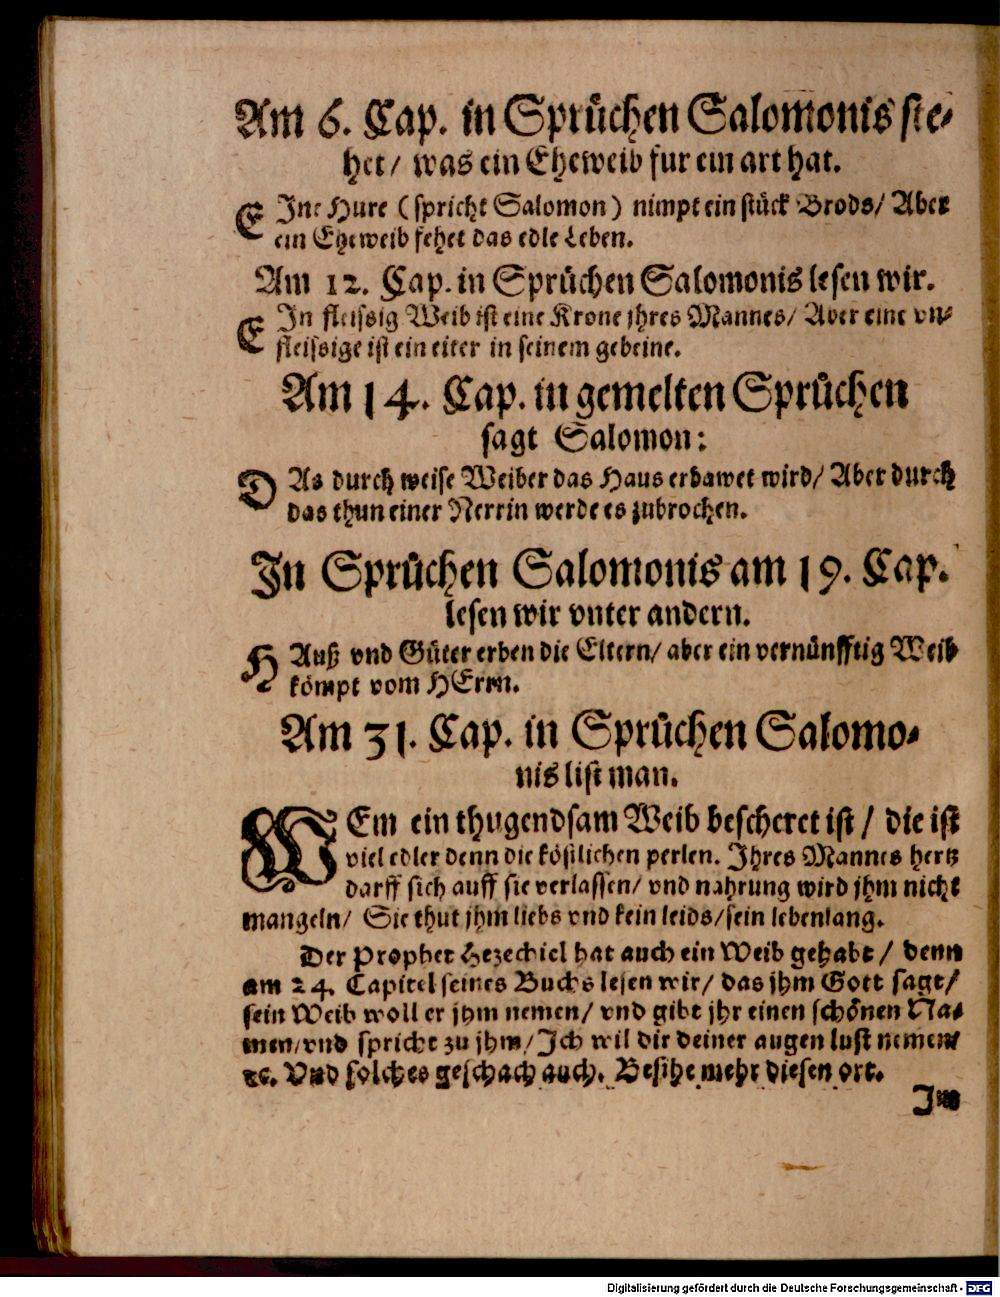 Am 6. Cap. in Sprůchen Salomonis ste⸗
het/ was ein Eheweib fur ein art hat.
EIne Hure (spricht Salomon) nimpt ein stück Brods/ Aber
ein Eheweib fehet das edle Leben.
Am 12. Cap. in Sprůchen Salomonis lesen wir.
EIn fleissig Weib ist eine Krone jhres Mannes/ Aber eine vn⸗
fleissige ist ein eiter in seinem gebeine.
Am 14. Cap. in gemelten Sprůchen
sagt Salomon:
DAs durch weise Weiber das Haus erbawet wird/ Aber durch
das thun einer Nerrin werde es zubrochen.
In Sprůchen Salomonis am 19. Cap.
lesen wir vnter andern.
HAuß vnd Gůter erben die Eltern/ aber ein vernůnfftig Weib
kömpt vom HErrn.
Am 31. Cap. in Sprůchen Salomo⸗
nis list man.
WEm ein thugendsam Weib bescheret ist / die ist
viel edler denn die köstlichen perlen. Jhres Mannes hertz
darff sich auff sie verlassen/ vnd nahrung wird jhm nicht
mangeln/ Sie thut jhm liebs vnd kein leids/sein lebenlang.
Der Prophet Hezechiel hat auch ein Weib gehabt / denn
am 24. Capitel seines Buchs lesen wir/ das jhm Gott sagt/
sein Weib woll er jhm nemen/ vnd gibt jhr einen schönen Na⸗
men/vnd spricht zu jhm/Ich wil dir deiner augen lust nemen
ꝛc. Vnd solches geschach auch. Besihe mehr diesen ort.
Im
Digitalisierung gefördert durch die Deutsche Forschungsgemeinschaft - DFG